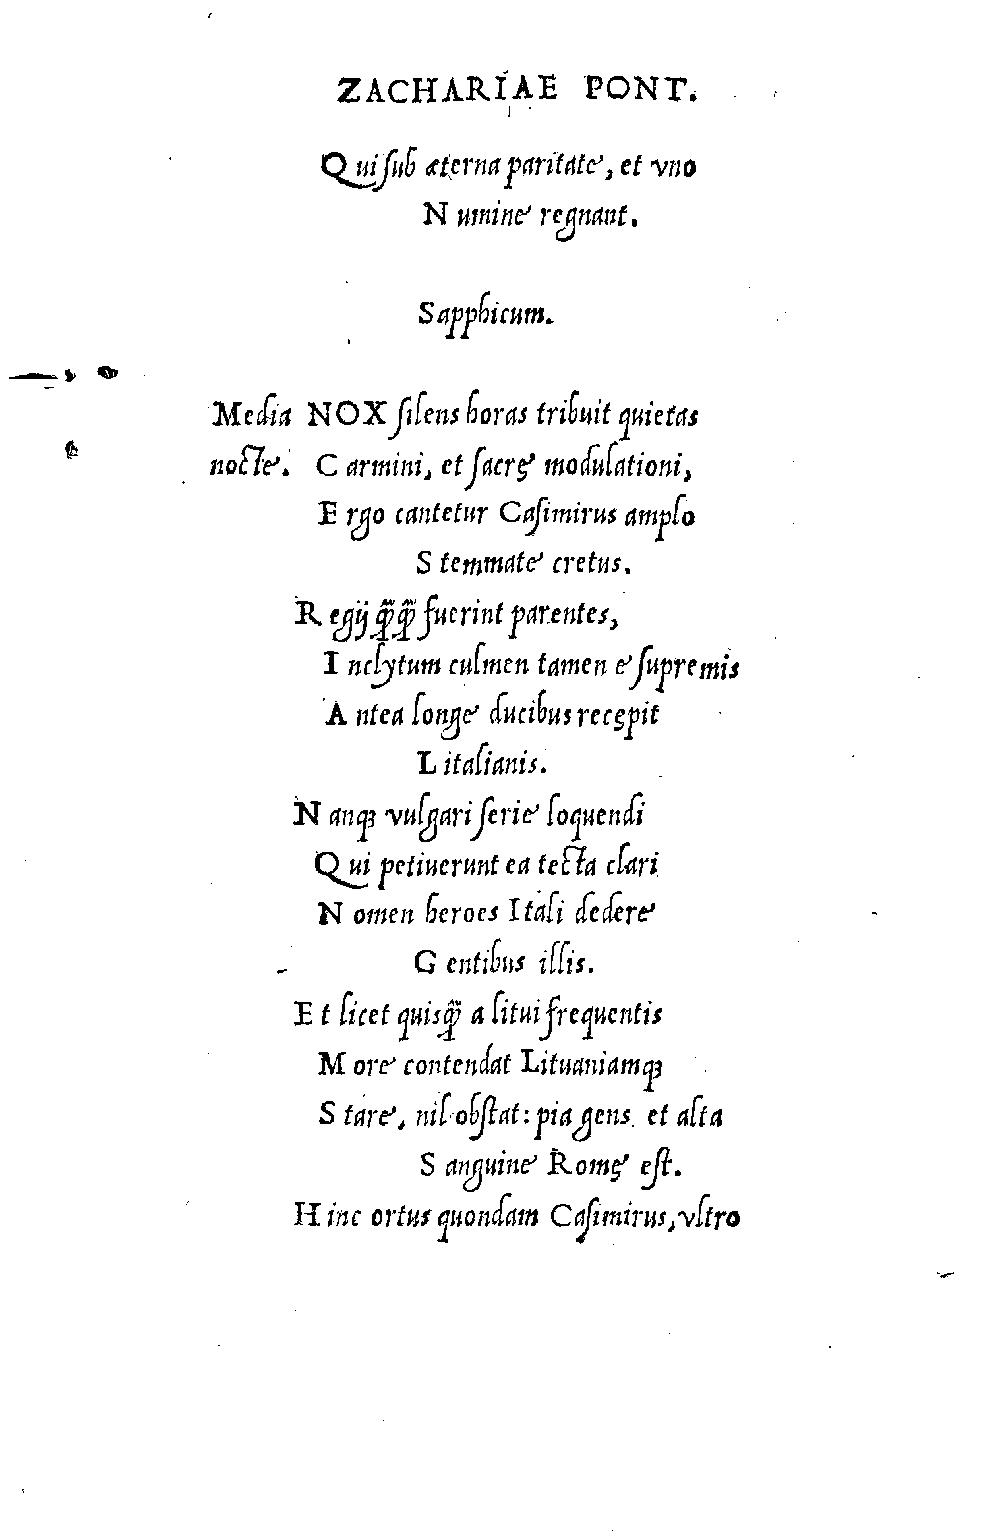 ZACHARIAE PONT.
Qui ſub æterna paritate, et vno
Numine regnant.
Sapphicum.
Media NOX ſilens horas tribuit quietas
nocte. Carmini, et ſacrę modulationi,
Ergo cantetur Caſimirus amplo
Stemmate cretus.
Regij fuerint parentes,
Inclytum culmen tamen e ſupremis
Antea longe ducibus recępit
Litalianis.
Nanqꝫ vulgari ſerie loquendi
Qui petiuerunt ea tecta clari
Nomen heroes Itali dedere
Gentibus illis.
Et licet quisq̃ a litui frequentis
More contendat Lituaniamqꝫ
Stare, nil obſtat: pia gens et alta
Sanguine Romę eſt.
Hinc ortus quondam Caſimirus, vltro